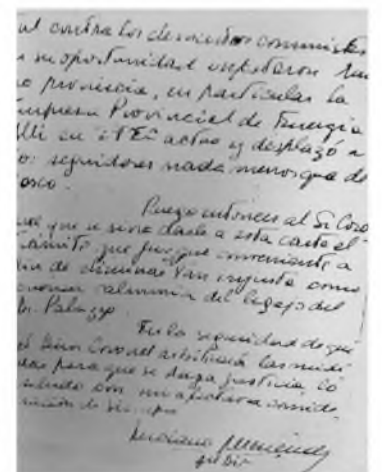 al contra los docentes comunistas
su oportunidad infestaron
provincia, en particular la
Empresa Provincial de Energía
Allí en EPEC actuó y desplazó a
los seguidores nada menos que de
osco.
Ruego entonces al Sr Coro
nel que se sirva darle a esta carta el
trámite que juzgue conveniente a
fin de eliminar tan injusta como
calumnia del legajo del
Dr. Palazzo.
En la seguridad de que
el Señor Coronel arbitrará las medi
das para que se haga justicia lo
saludo con mi afectuosa conside
ración de siempre
Luciano Menéndez